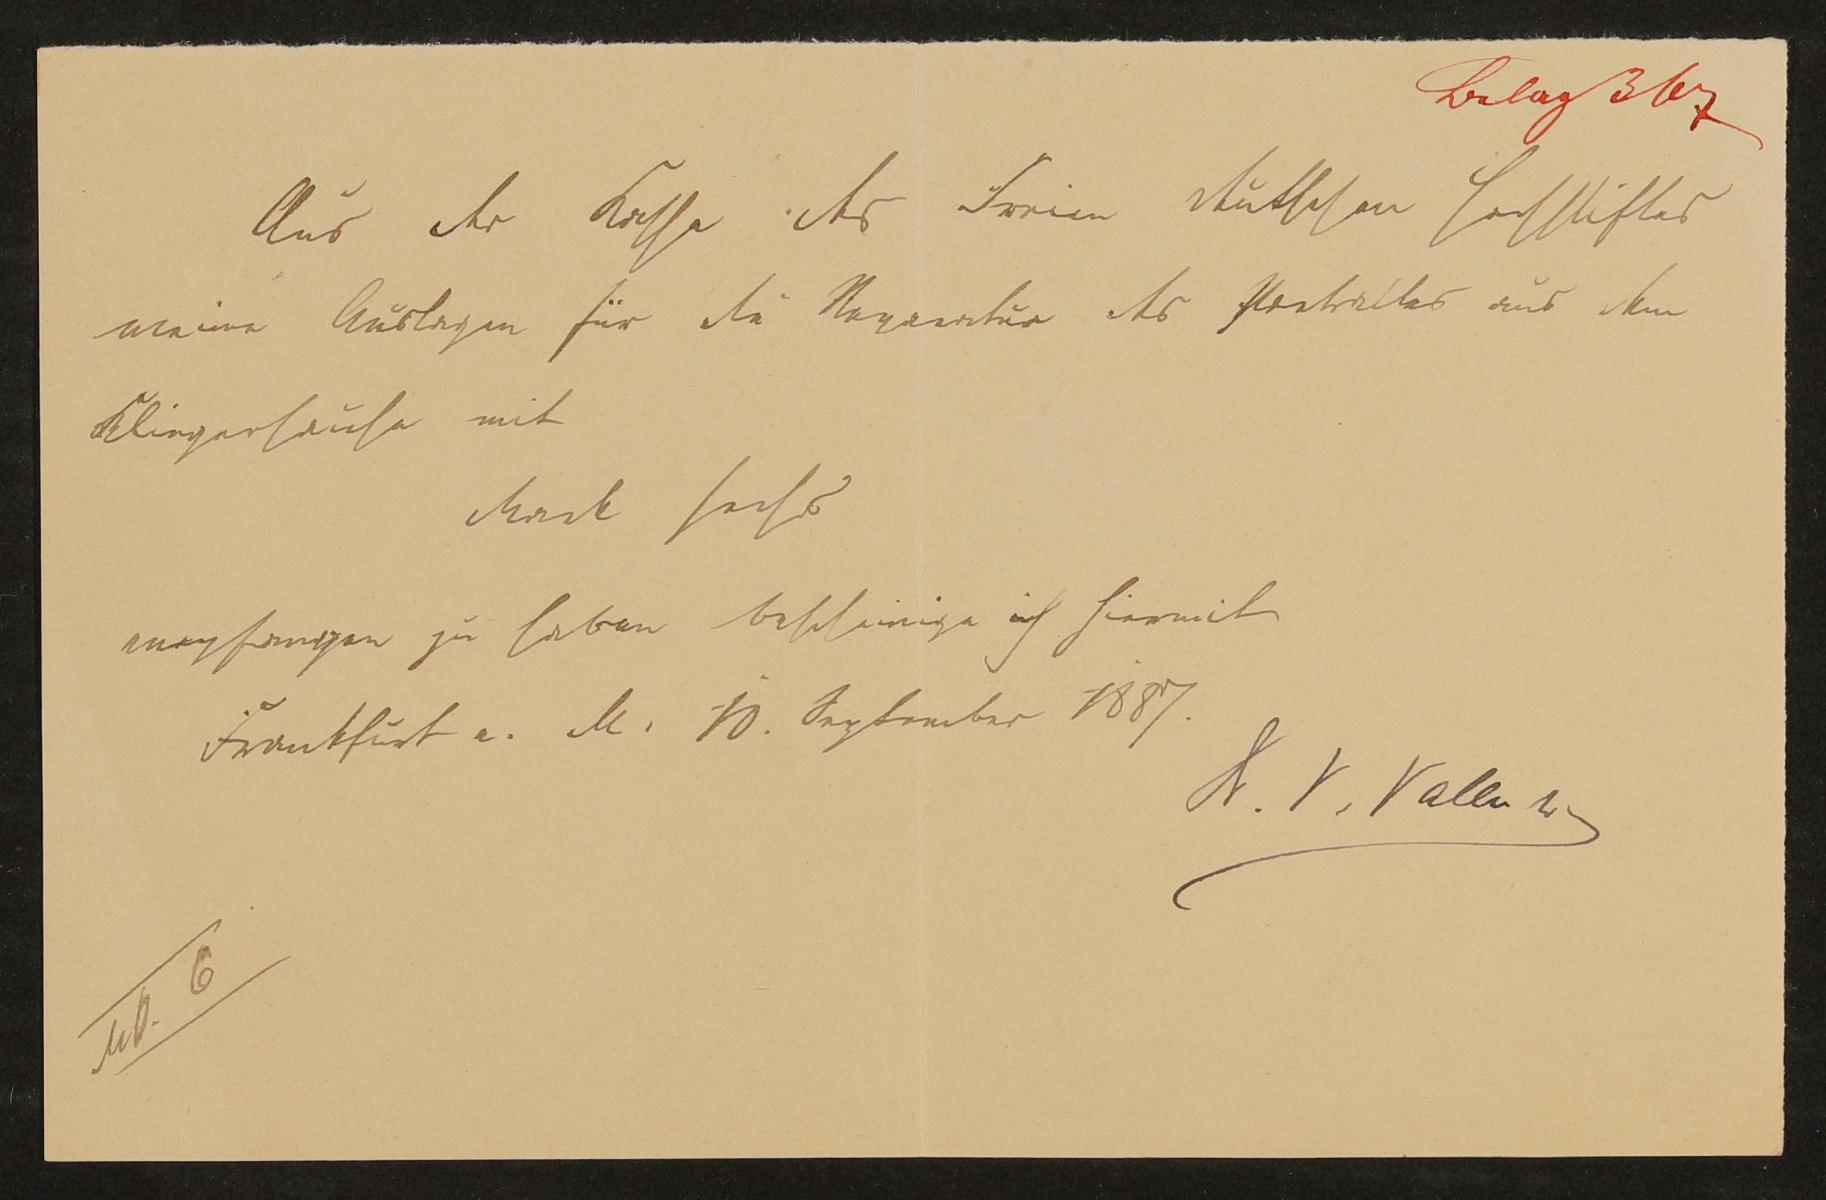 Belag 367
Aus der Kasse des Freien deutschen Hochstiftes
meine Auslagen für die Reparatur des Portraites aus dem
Klingerhause mit
Mark sechs
empfangen zu haben bescheinige ich hiermit
Frankfurt a. M. 10. September 1887.
V. Valen
M. 6